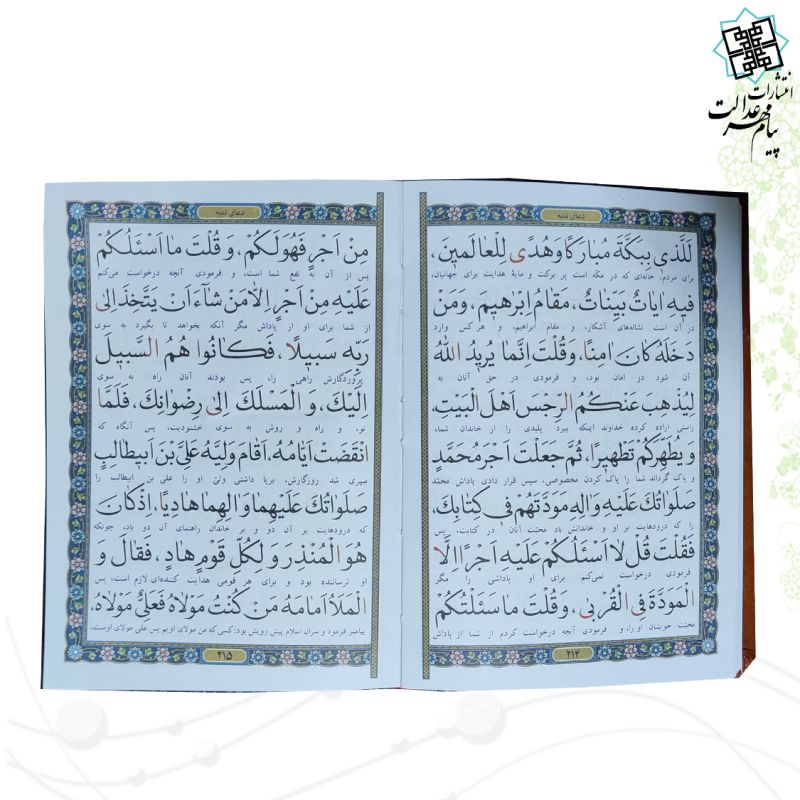 انتشارات
پیام مهر عدالت
دعای ندبه
لَلَّذی بِبَکَّةَ مُبارَکًا وَهُدًی لِلْعالَمینَ،
برای مردم؛ خانه‌ای که در مکّه است پر برکت و مایهٔ هدایت برای جهانیان،
فیهِ ایاتٌ بَیِّناتٌ، مَقامُ اِبْرهیمَ، وَمَنْ
در آن است نشانه‌های آشکار، و مقام ابراهیم، و هر کس وارد
دَخَلَهُ کانَ امِنًا، وَقُلْتَ اِنَّما یُریدُ اللهُ
آن شود در امان بود، و فرمودی در حق آنان به
لِیُذْهِبَ عَنْکُمُ الرِّجْسَ اَهْلَ الْبَیْتِ،
راستی اراده کرده خداوند اینکه ببرد پلیدی را از خاندان شما،
وَ یُطَهِّرَکُمْ تَطْهیرًا، ثُمَّ جَعَلْتَ اَجْرَ مُحَمَّدٍ
و پاک گرداند شما را پاک کردن مخصوصی، سپس قرار دادی پاداش محمّد
صَلَواتُكَ عَلَیْهِ وَالِهِ مَوَدَّتَهُمْ فی کِتابِكَ،
را که درودهایت بر او و خاندانش باد محبّت آنان در کتابت، پس
فَقُلْتَ قُلْ لا اَسْئَلُکُمْ عَلَیْهِ اَجْرًا اِلَّا
فرمودی درخواست نمی‌کنم برای او پاداشی را مگر
الْمَوَدَّةَ فِی الْقُرْبی، وَقُلْتَ ما سَئَلْتُکُمْ
محبّت خویشان او را، و فرمودی آنچه درخواست کردم از شما از پاداش
۲۱۴
دعای ندبه
مِنْ اَجْرٍ فَهُوَ لَکُمْ، وَ قُلْتَ ما اَسْئَلُکُمْ
پس از آن به نفع شما است، و فرمودی آنچه درخواست می‌کنم
عَلَیْهِ مِنْ اَجْرٍ اِلَّا مَنْ شآءَ اَنْ یَتَّخِذَ اِلی
از شما برای او از پاداش مگر آنکه بخواهد تا بگیرد به سوی
رَبِّهِ سَبیلًا، فَکانُوا هُمُ السَّبیلَ
پروردگارش راهی را، پس بودند آنان راه به سوی
اِلَیْكَ، وَ الْمَسْلَكَ اِلی رِضْوانِكَ، فَلَمَّا
تو، و راه و روش به سوی خشنودیت، پس آنگاه که
انْقَضَتْ اَیّامُهُ، اَقامَ وَلِیَّهُ عَلِیَّ بْنَ اَبیطالِبٍ
سپری شد روزگارش، برپا داشتی ولیّ او را علی بن ابیطالب را
صَلَواتُكَ عَلَیْهِما وَ الِهِما هادِیًا، اِذْ کانَ
که درودهایت بر آن دو و بر خاندان راهنمای آن دو باد، چونکه
هُوَ الْمُنْذِرَ وَ لِکُلِّ قَوْمٍ هادٍ، فَقالَ وَ
او ترساننده بود و برای هر قومی هدایت کننده‌ای لازم است، پس
الْمَلَاُ اَمامَهُ مَنْ کُنْتُ مَوْلاهُ فَعَلِیٌّ مَوْلاهُ،
پیامبر فرمود و سران اسلام پیش رویش بود: کسی که من مولای اویم پس علی مولای اوست،
۲۱۵